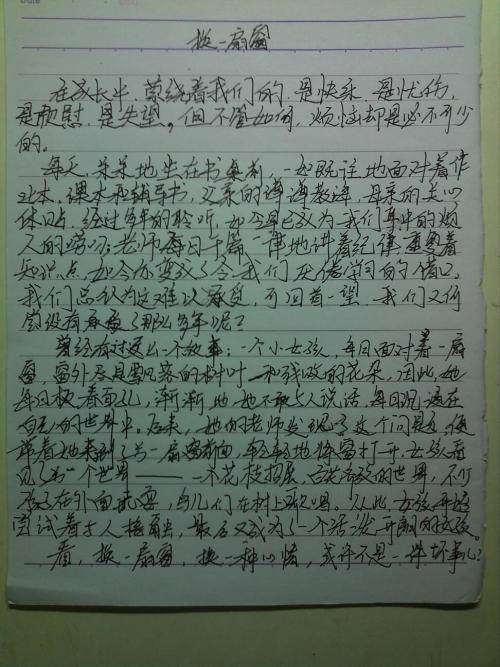 换一扇窗
在成长中,萦绕着我们的,是快乐,是忧伤,
是欣慰,是失望。但不管如何,烦恼却是必不可少
的。
每天,呆呆地坐在书桌前,一如既往地面对着作
业本、课本和辅导书,父亲的谆谆教诲,母亲的关心
体贴,经过多年的聆听,如今早已成为我们耳中的烦
人的唠叨;老师每日千篇一律地讲着纪律,重复着
知识点,如今亦变成了令我们厌倦的借口。
我们总认为这难以承受,可回首一望,我们又何
尝没有承受了那么多年呢?
曾经有过这么一个故事:一个小女孩,每日面对着一扇
窗,窗外尽是凋落的树叶和残败的花朵,因此,她
每日板着面孔,渐渐地,她不敢与人说话,每日沉浸在
自己的世界中。后来,她的老师发现了这个问题,便
带着她来到了另一扇窗前,轻轻地将窗打开,女孩看
见了另一个世界——一个花枝招展,百花齐放的世界,
在外面玩耍,鸟儿们在树上歌唱。从此,女孩开始
尝试着与人接触,最后又成为了一个活泼开朗的女孩。
看,换一扇窗,换一种心情,或许不是一件坏事儿?